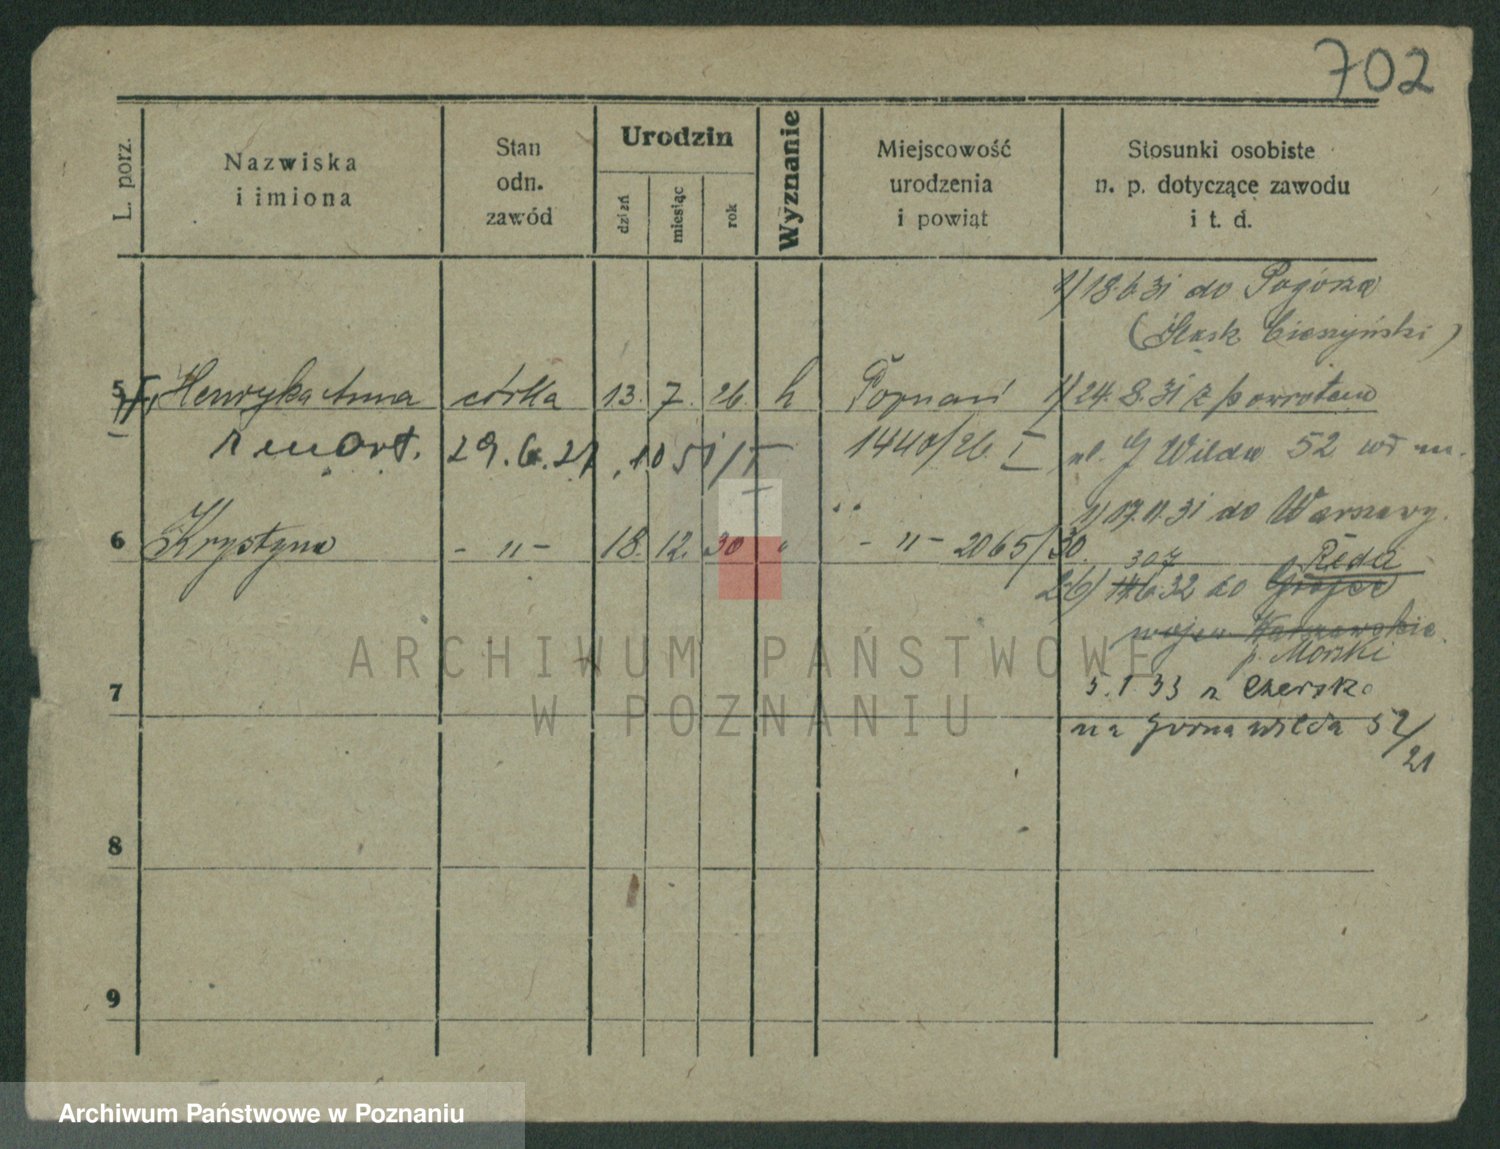 702
L. porz.
Nazwiska
i imiona
Stan
odn.
zawód
Urodzin
dzień
miesiąc
rok
Wyznanie
Miejscowość
urodzenia
i powiat
Stosunki osobiste
n. p. dotyczące zawodu
i t. d.
1/ 18.6.31 do Pogórza
(Śląsk Cieszyński)
5 Henryka Anna córka 13. 7. 26. k Poznań 1/ 24.8.31 z powrotem
zmarł. 29.6.27, 1051/I 1440/26 I ul. G Wilda 52
1/ 17.11.31 do Warszawy.
6 Krystyna - " - 18. 12. 30 " - " - 2065/30.
307 Reda
26/ 6.32 do Grójec
wojew Warszawskie.
p. Morski
7 5.1 33 z Czerska
na Górna Wilda 52/21
8
9
ARCHIWUM PAŃSTWOWE
W POZNANIU
Archiwum Państwowe w Poznaniu